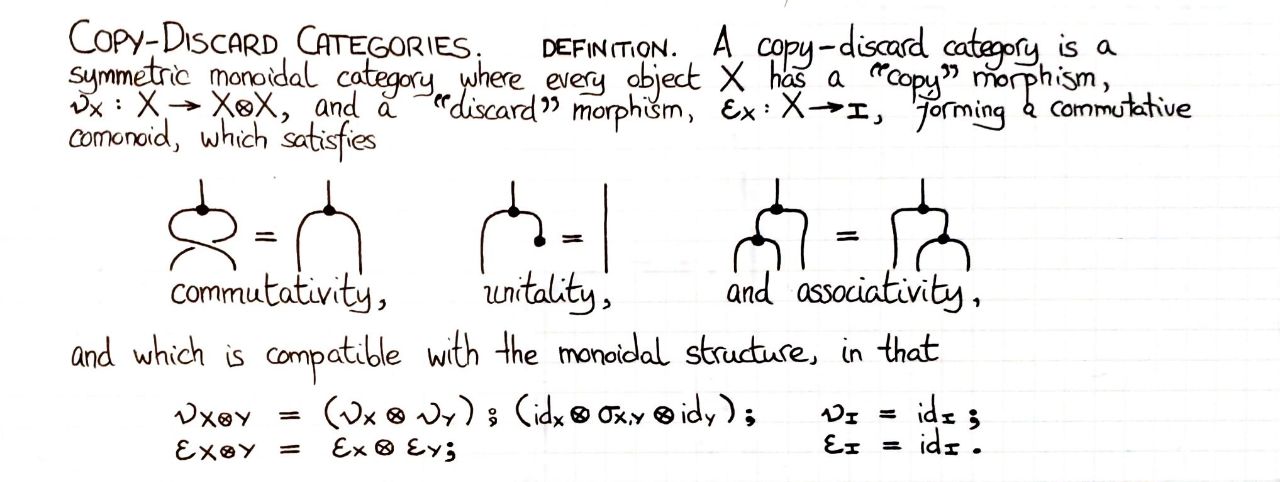 COPY-DISCARD CATEGORIES. DEFINITION. A copy-discard category is a
symmetric monoidal category where every object X has a “copy” morphism,
νX : X → X⊗X, and a “discard” morphism, εX : X → I, forming a commutative
comonoid, which satisfies
= = =
commutativity, unitality, and associativity,
and which is compatible with the monoidal structure, in that
νX⊗Y = (νX ⊗ νY) ; (idX ⊗ σX,Y ⊗ idY) ; νI = idI ;
εX⊗Y = εX ⊗ εY; εI = idI .